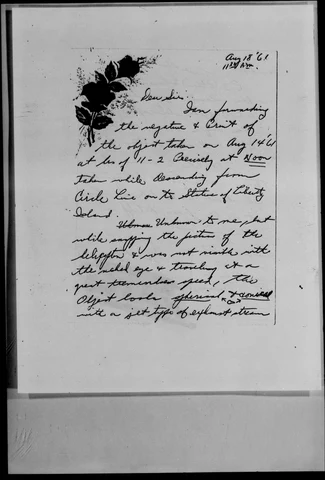 Aug 18 '61
11:30 A.M.
Dear Sir:
I am forwarding
the negative & print of
the object taken on Aug 14 '61
at lens of 11-2 Precisely at Noon
taken while descending from
Circle Line on to Statue of Liberty
Island.
Unknown to me, but
while snapping the picture of the
& was not visible with
the naked eye & traveling at a
great tremendous speed, The
Object looks spherical, & conical
with a jet type of exhaust stream